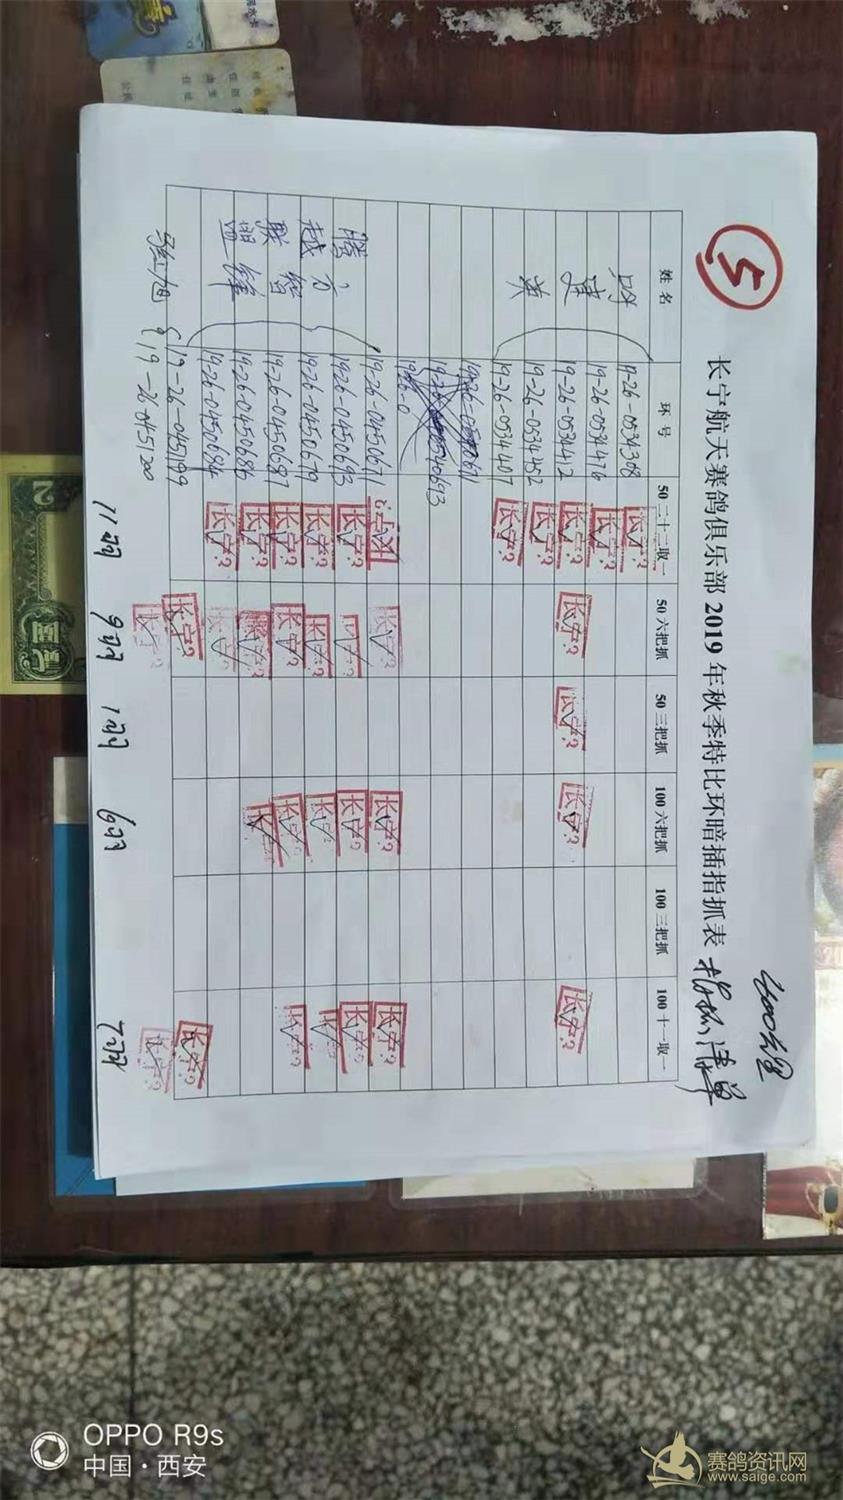 5
长宁航天赛鸽俱乐部 2019 年秋季特比环暗插指抓表
姓名 环号 50 二十二取一 50 六把抓 50 三把抓 100 六把抓 100 三把抓 100 十一取一
19-26-0534308 长宁?
19-26-0534476 长宁?
19-26-0534412 长宁? 长宁? 长宁? 长宁? 长宁?
19-26-0534452 长宁?
19-26-0534407 长宁?
19-26-0
19-26-0450671 长宁? 长宁? 长宁? 长宁?
19-26-0450693 长宁? 长宁? 长宁? 长宁?
19-26-0450679 长宁? 长宁? 长宁? 长宁?
19-26-0450687 长宁? 长宁? 长宁? 长宁?
19-26-0450686 长宁? 长宁? 长宁?
19-26-0450684 长宁? 长宁?
腾越联盟
方智锋
19-26-0451199 长宁? 长宁?
19-26-0451200 长宁? 长宁?
11羽 9羽 1羽 6羽 7羽
2
OPPO R9s
中国·西安
赛鸽资讯网
www.saige.com